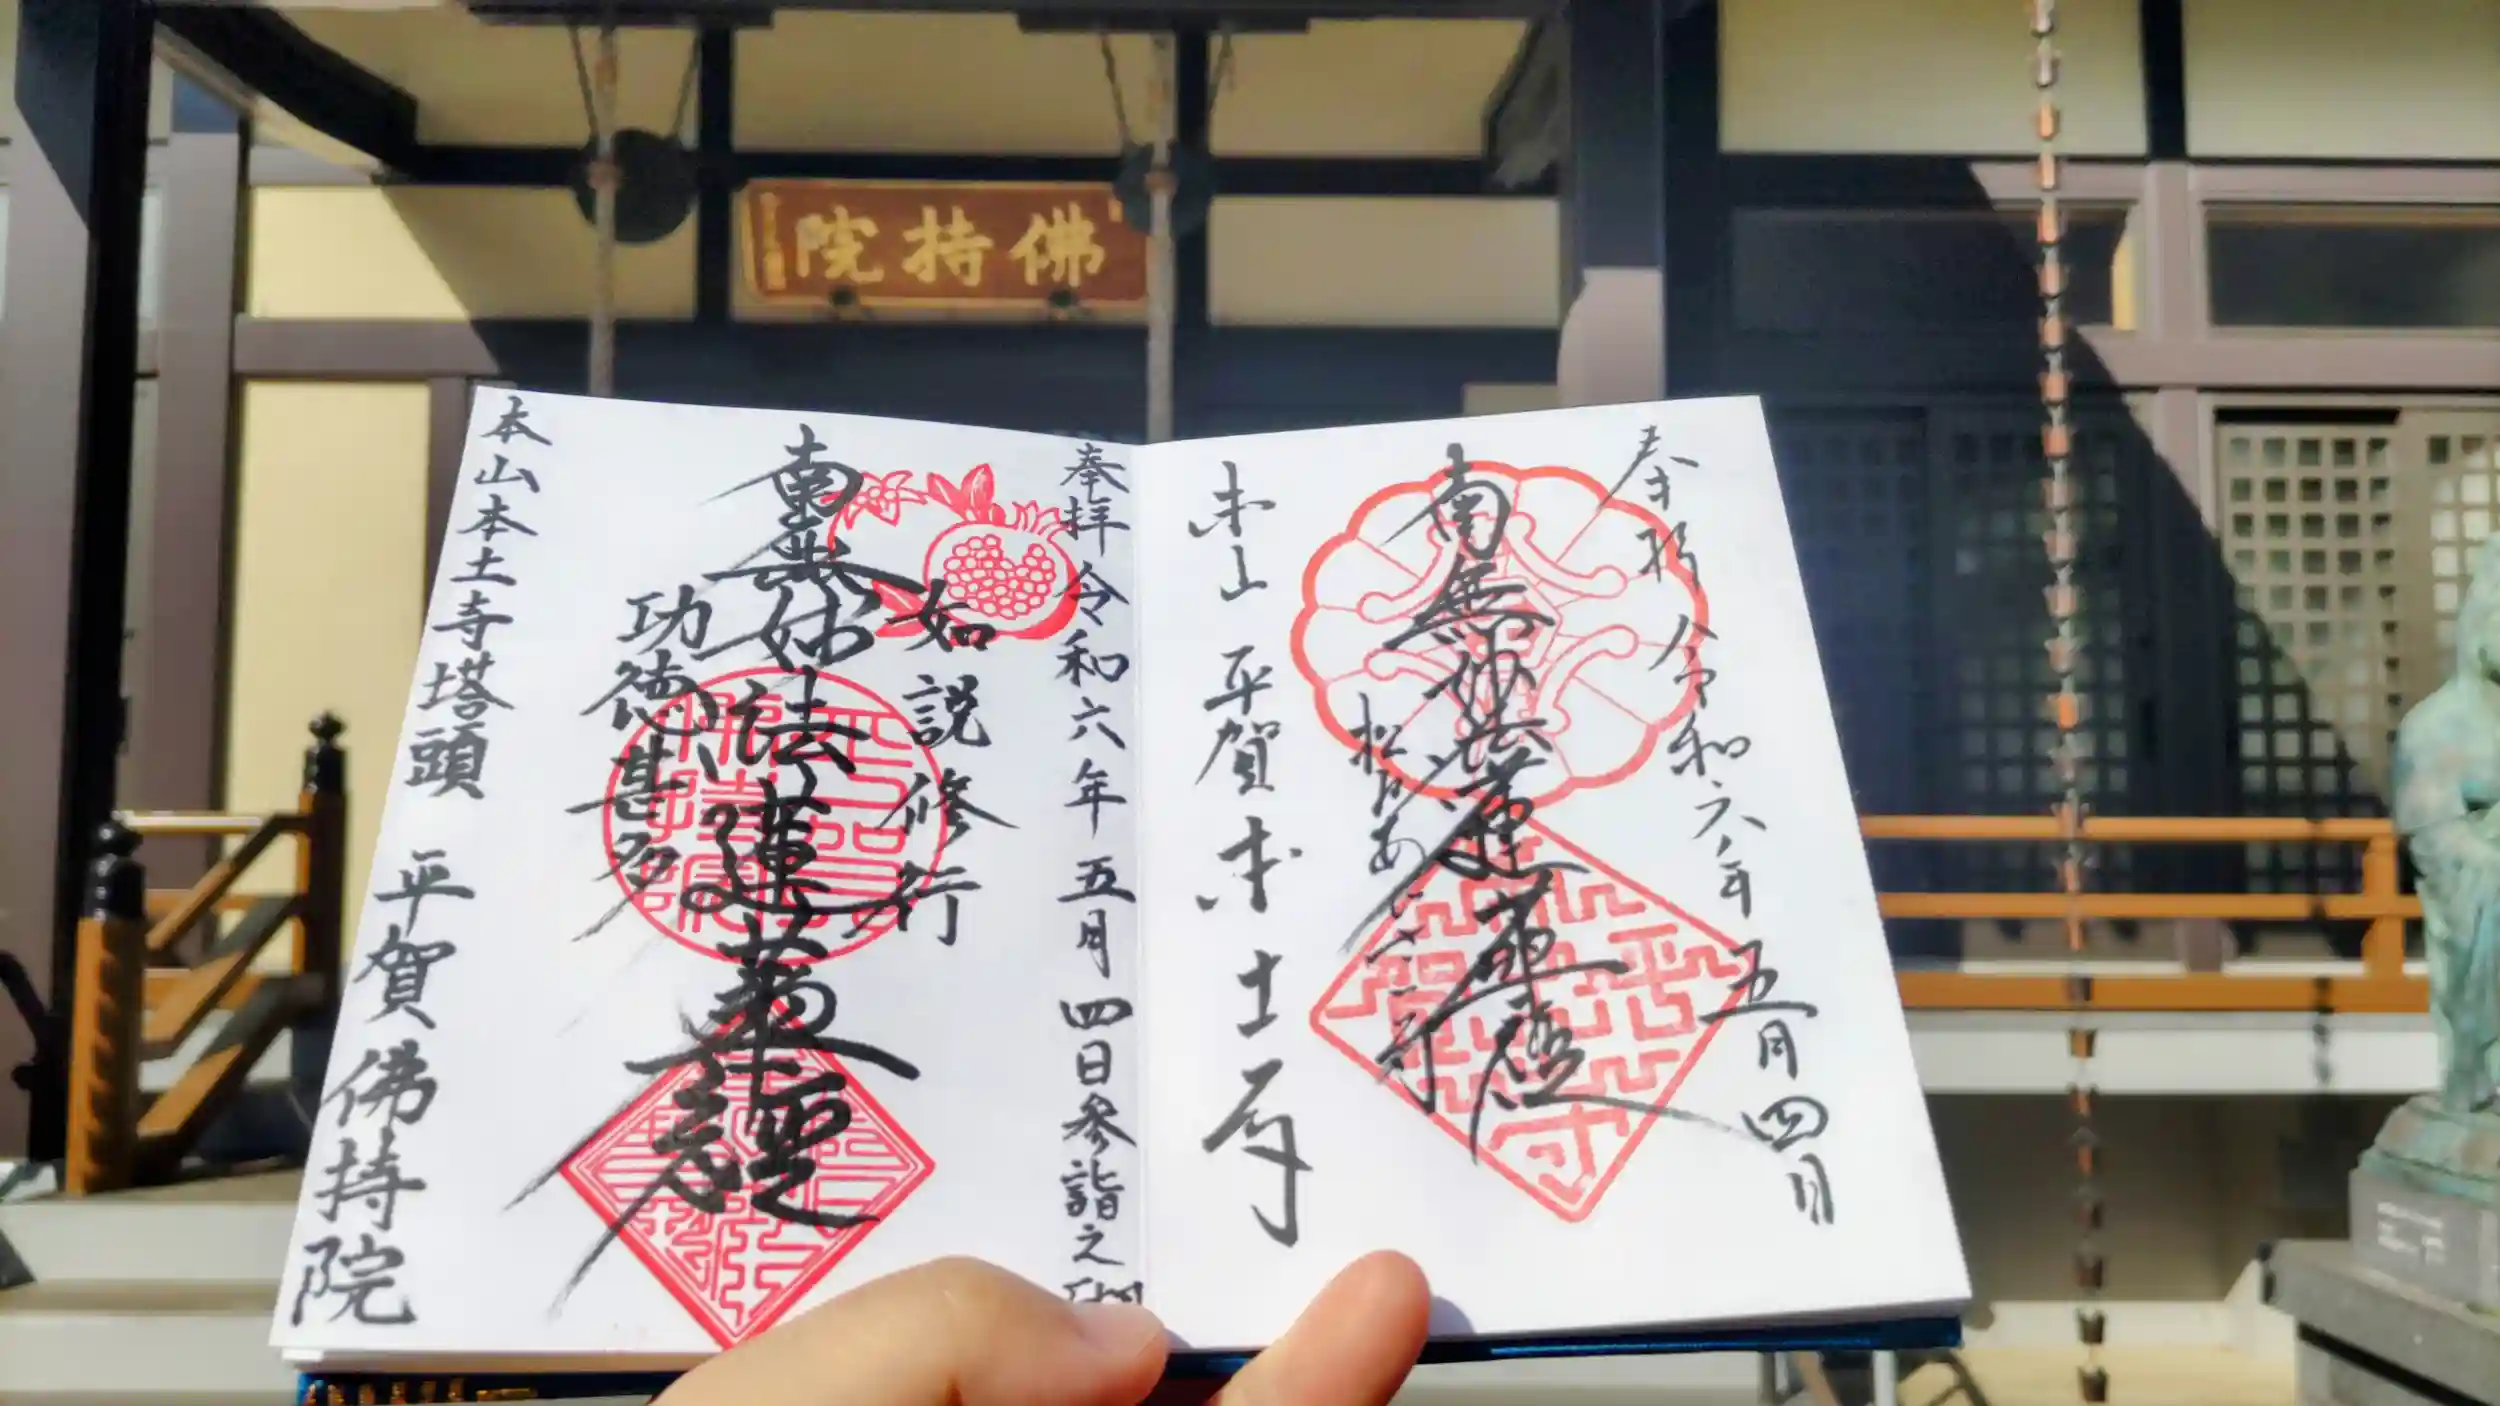 佛持院
奉拝 令和六年五月四日
南無妙法蓮華経
本山 平賀 本土寺
奉拝 令和六年五月四日参詣之
如説修行
南無妙法蓮華經
功徳甚多
本山本土寺塔頭 平賀 佛持院